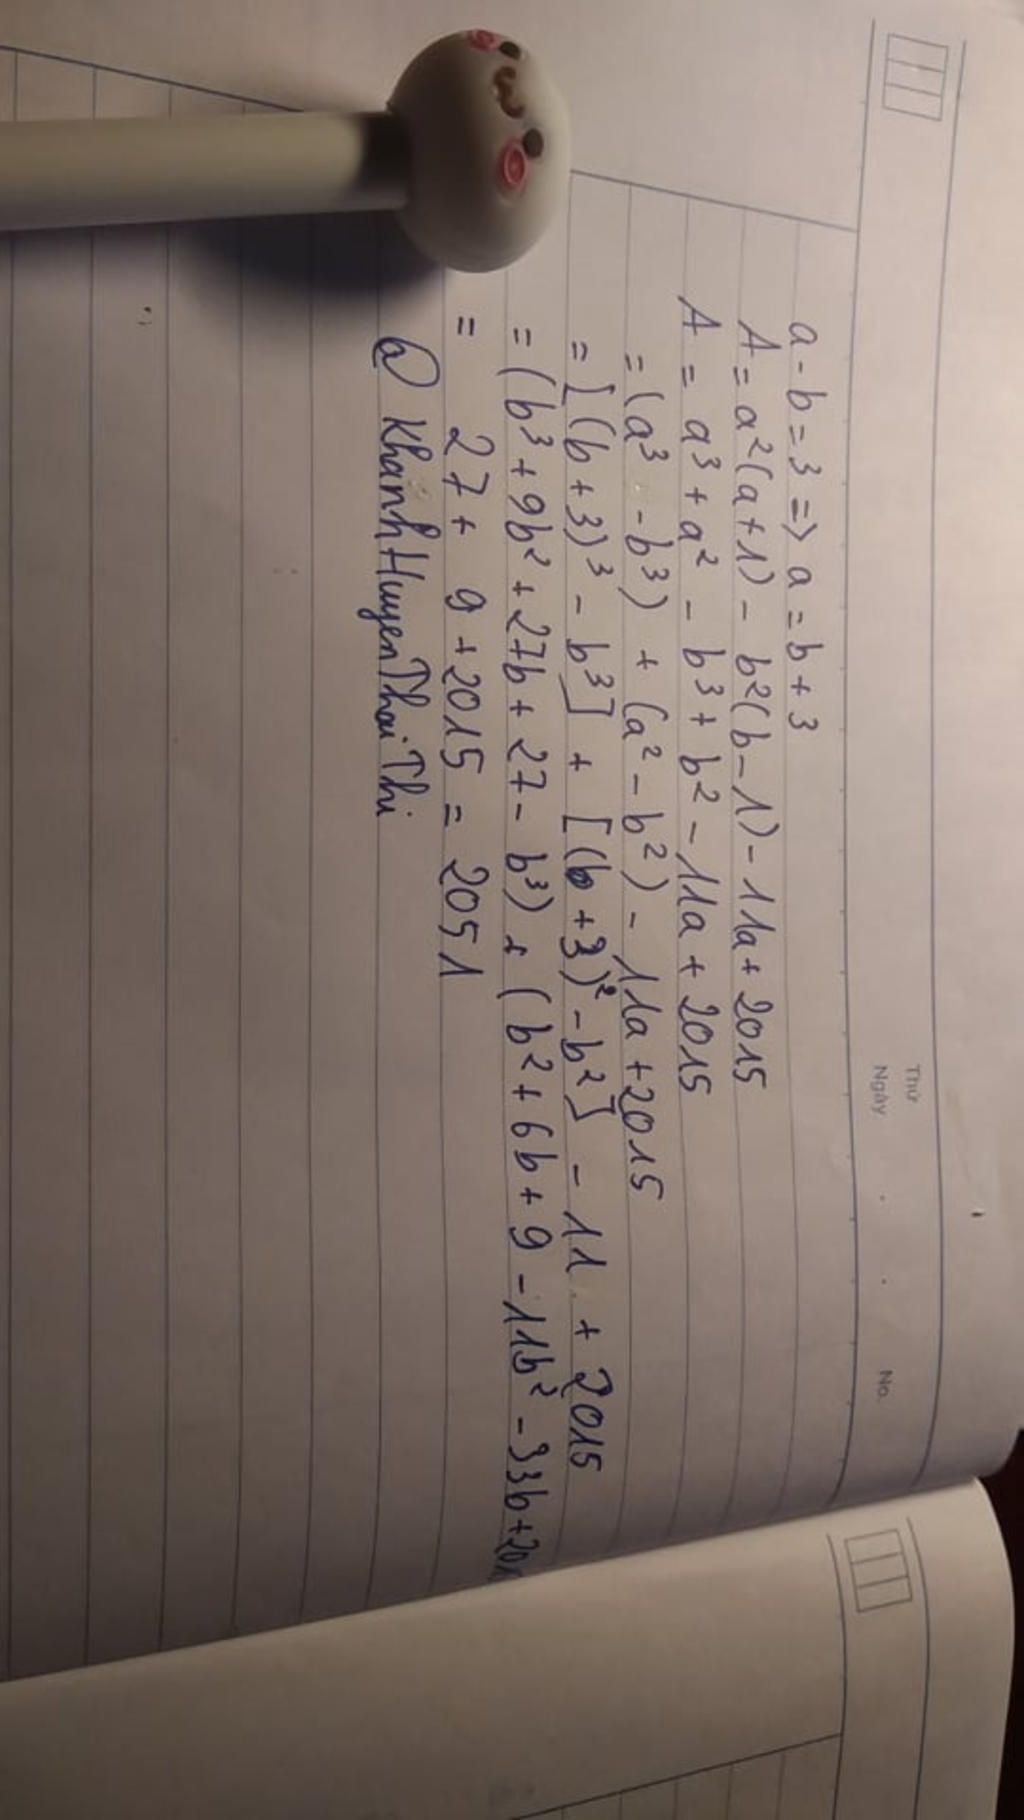 Thứ
Ngày . . No.
a - b = 3 => a = b + 3
A = a²(a+1) - b²(b-1) - 11a + 2015
A = a³ + a² - b³ + b² - 11a + 2015
= (a³ - b³) + (a² - b²) - 11a + 2015
= [(b+3)³ - b³] + [(b+3)² - b²] - 11 + 2015
= (b³ + 9b² + 27b + 27 - b³) + (b² + 6b + 9 - 11b² - 33b + 201
= 27 + 9 + 2015 = 2051
@ KhanhHuyenThaiThi